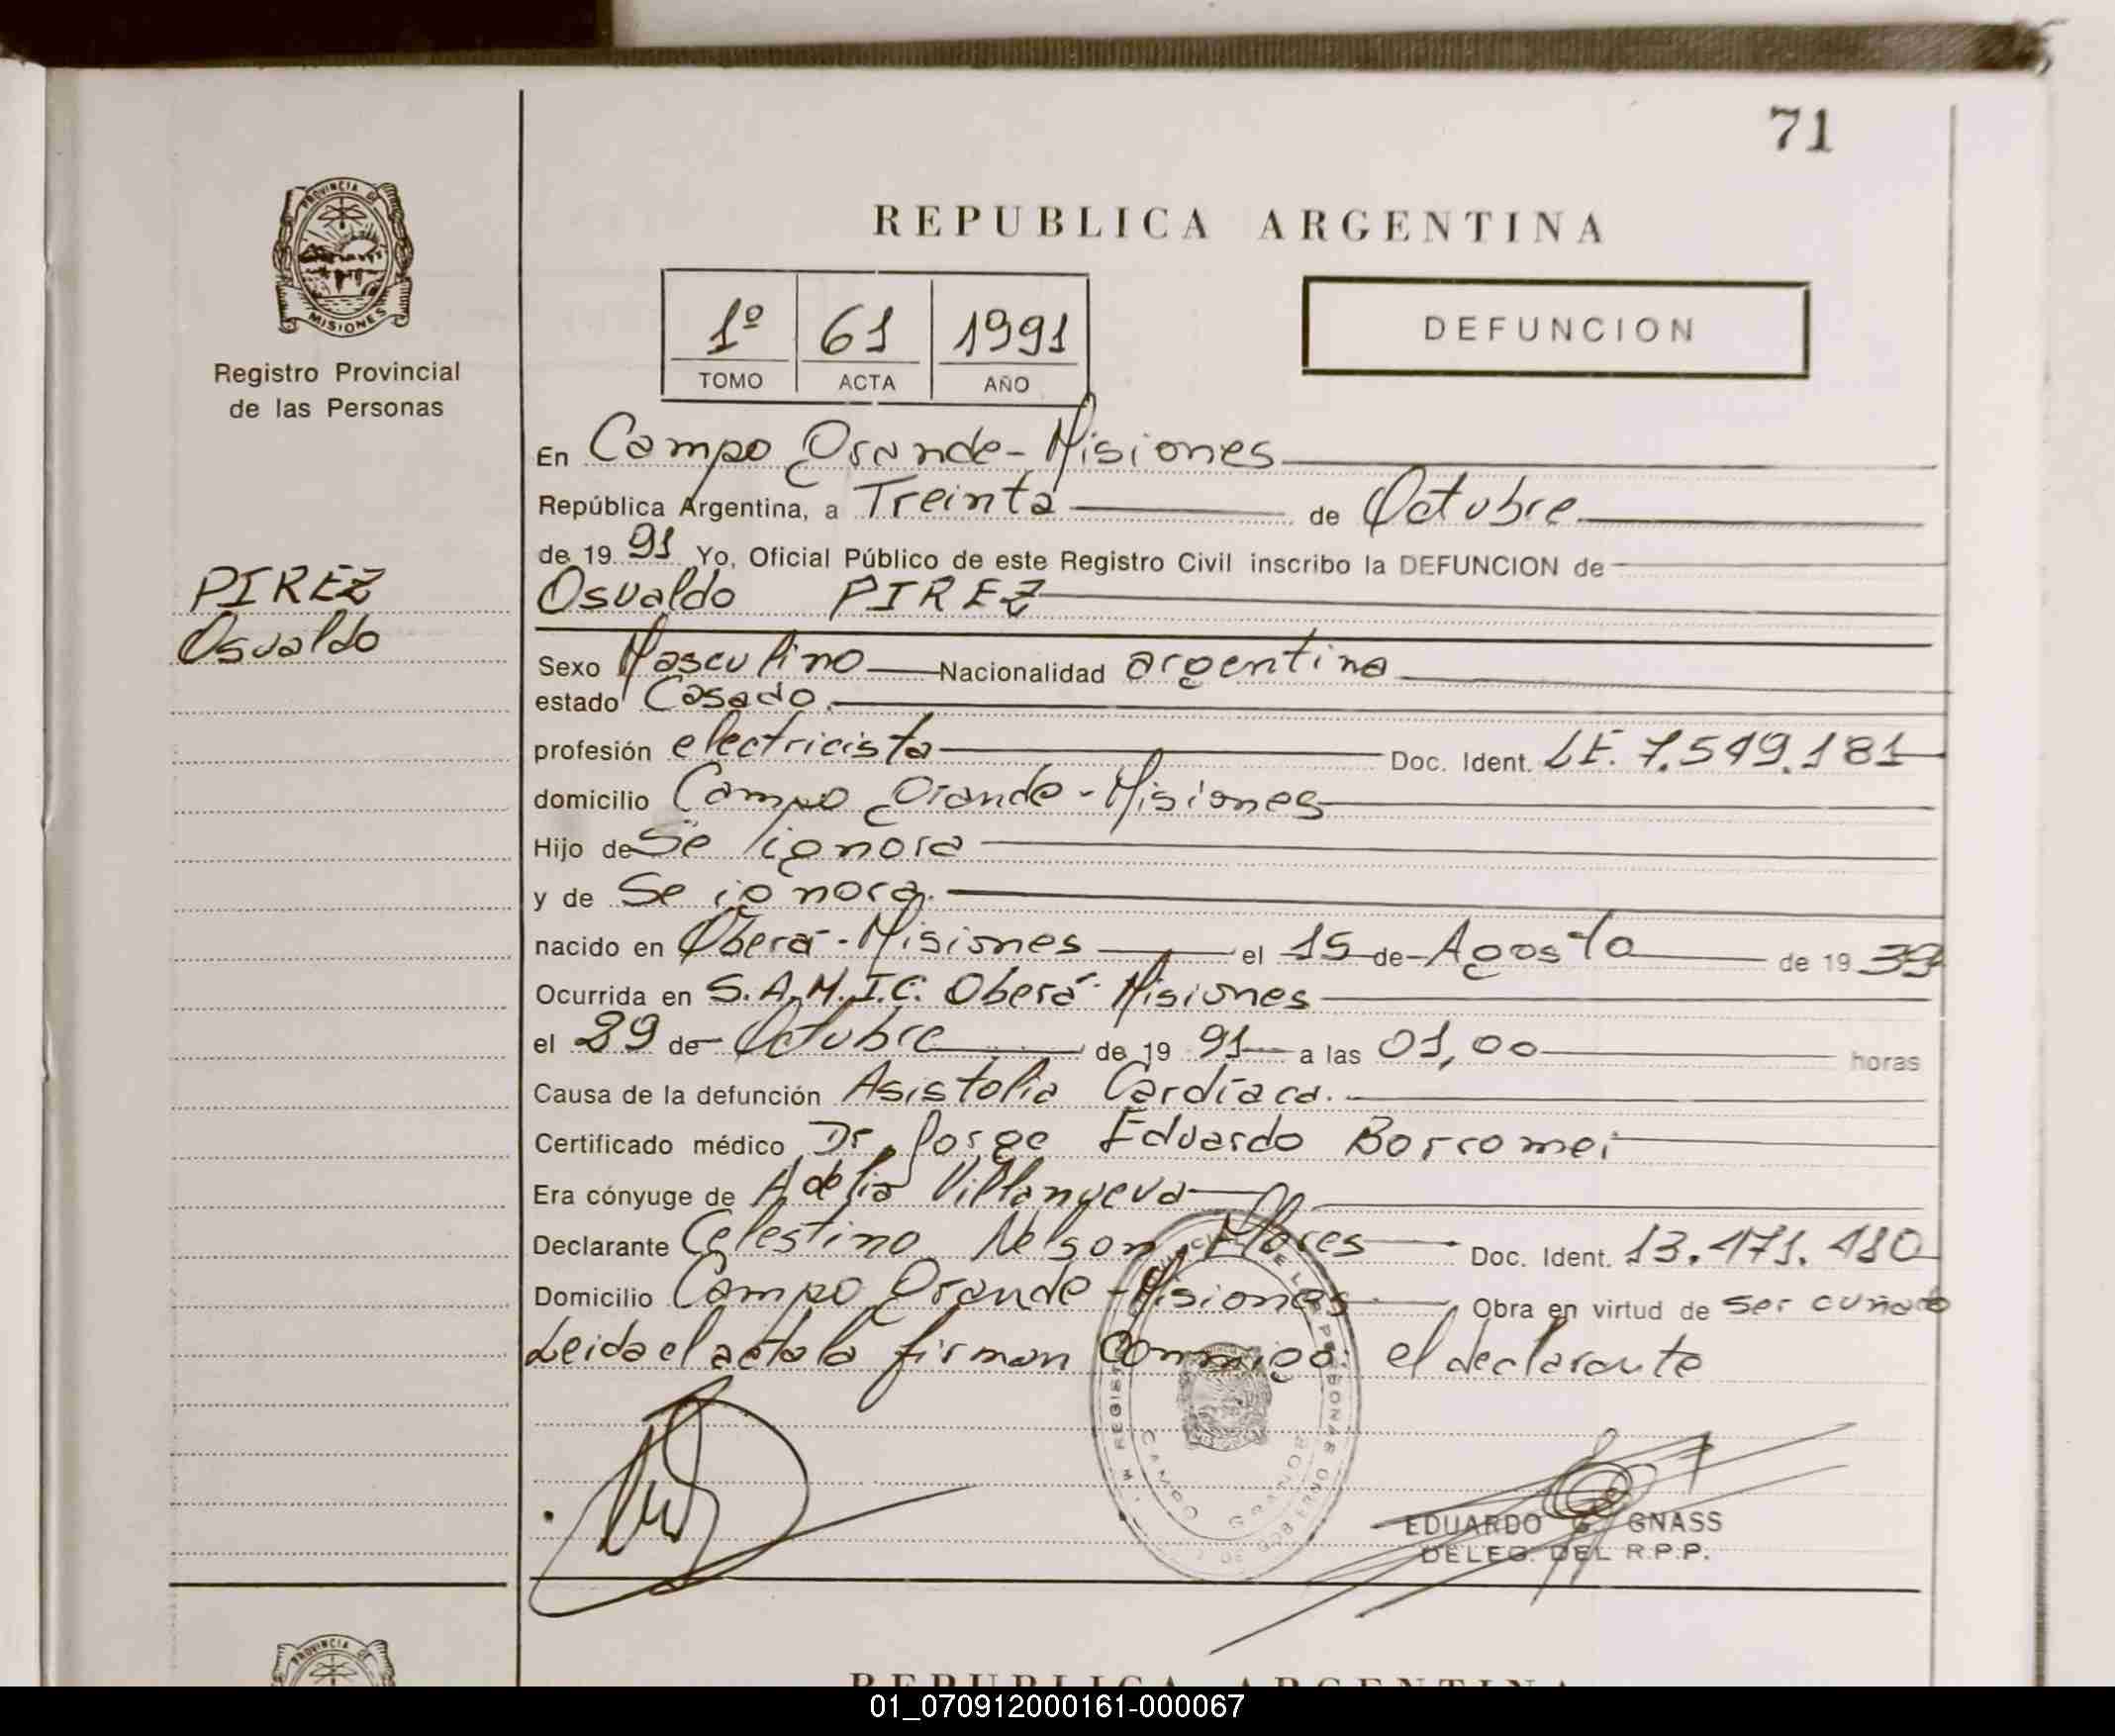 71
PROVINCIA DE
MISIONES
Registro Provincial
de las Personas
REPUBLICA ARGENTINA
1º 61 1991
TOMO ACTA AÑO
DEFUNCION
En Campo Grande - Misiones
República Argentina, a Treinta de Octubre
de 19 91 Yo, Oficial Público de este Registro Civil inscribo la DEFUNCION de
PIREZ
Osvaldo
Osvaldo PIREZ
Sexo Masculino Nacionalidad argentina
estado Casado.
profesión electricista Doc. Ident. L.E. 7.549.181
domicilio Campo Grande - Misiones
Hijo de Se ignora
y de Se ignora.
nacido en Oberá - Misiones el 15 de Agosto de 19 39
Ocurrida en S.A.M.I.C. Oberá - Misiones
el 29 de Octubre de 19 91 a las 01,00 horas
Causa de la defunción Asistolia Cardíaca.
Certificado médico Dr. Jorge Eduardo Borromei
Era cónyuge de Adelia Villanueva
Declarante Celestino Nelson Flores Doc. Ident. 13.171.180
Domicilio Campo Grande - Misiones Obra en virtud de ser cuñado
Leida el acta la firman conmigo: el declarante
CAMPO GRANDE
EDUARDO G. GNASS
DELEG. DEL R.P.P.
PROVINCIA
REPUBLICA ARGENTINA
01_070912000161-000067